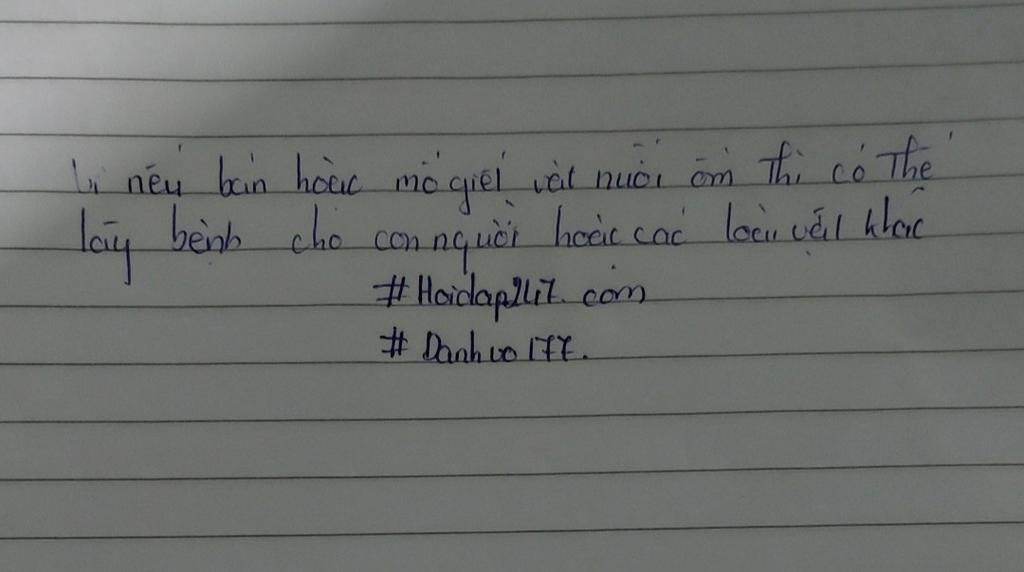 Vì nếu bán hoặc mổ giết vật nuôi ốm thì có thể
lây bệnh cho con người hoặc các loài vật khác
#Hoidap247.com
#Danhvo177.